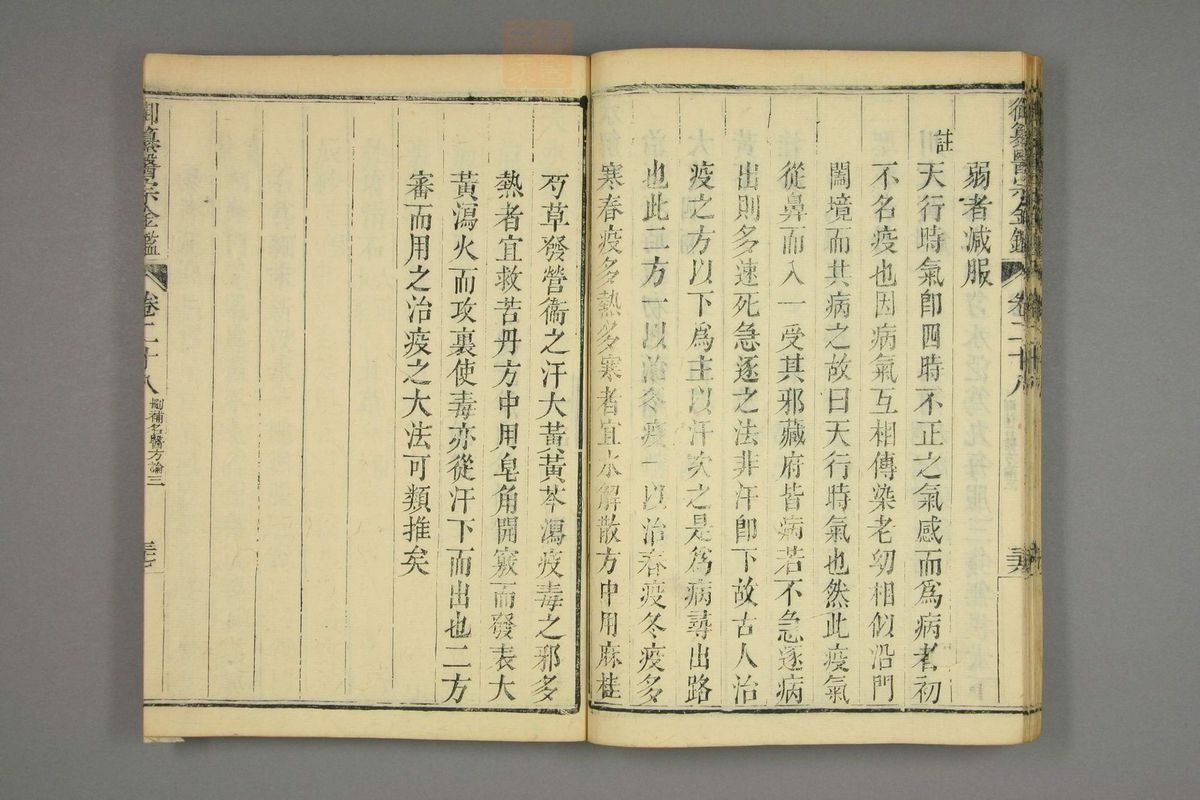 御纂醫宗金鑑 卷二十八
弱者减服
註
天行時氣卽四時不正之氣感而爲病者初
不名疫也因病氣互相傳染老幼相似沿門
闔境而共病之故曰天行時氣也然此疫氣
從鼻而入一受其邪藏府皆病若不急逐病
出則多速死急逐之法非汗卽下故古人治
疫之方以下爲主以汗次之是爲病尋出路
也此二方一以治冬疫一以治春疫冬疫多
寒春疫多熱多寒者宜水解散方中用麻桂
芍草發營衞之汗大黃黃芩瀉疫毒之邪多
熱者宜救苦丹方中用皂角開竅而發表大
黃瀉火而攻裏使毒亦從汗下而出也二方
審而用之治疫之大法可類推矣
御纂醫宗金鑑 卷二十八 刪補名醫方論三